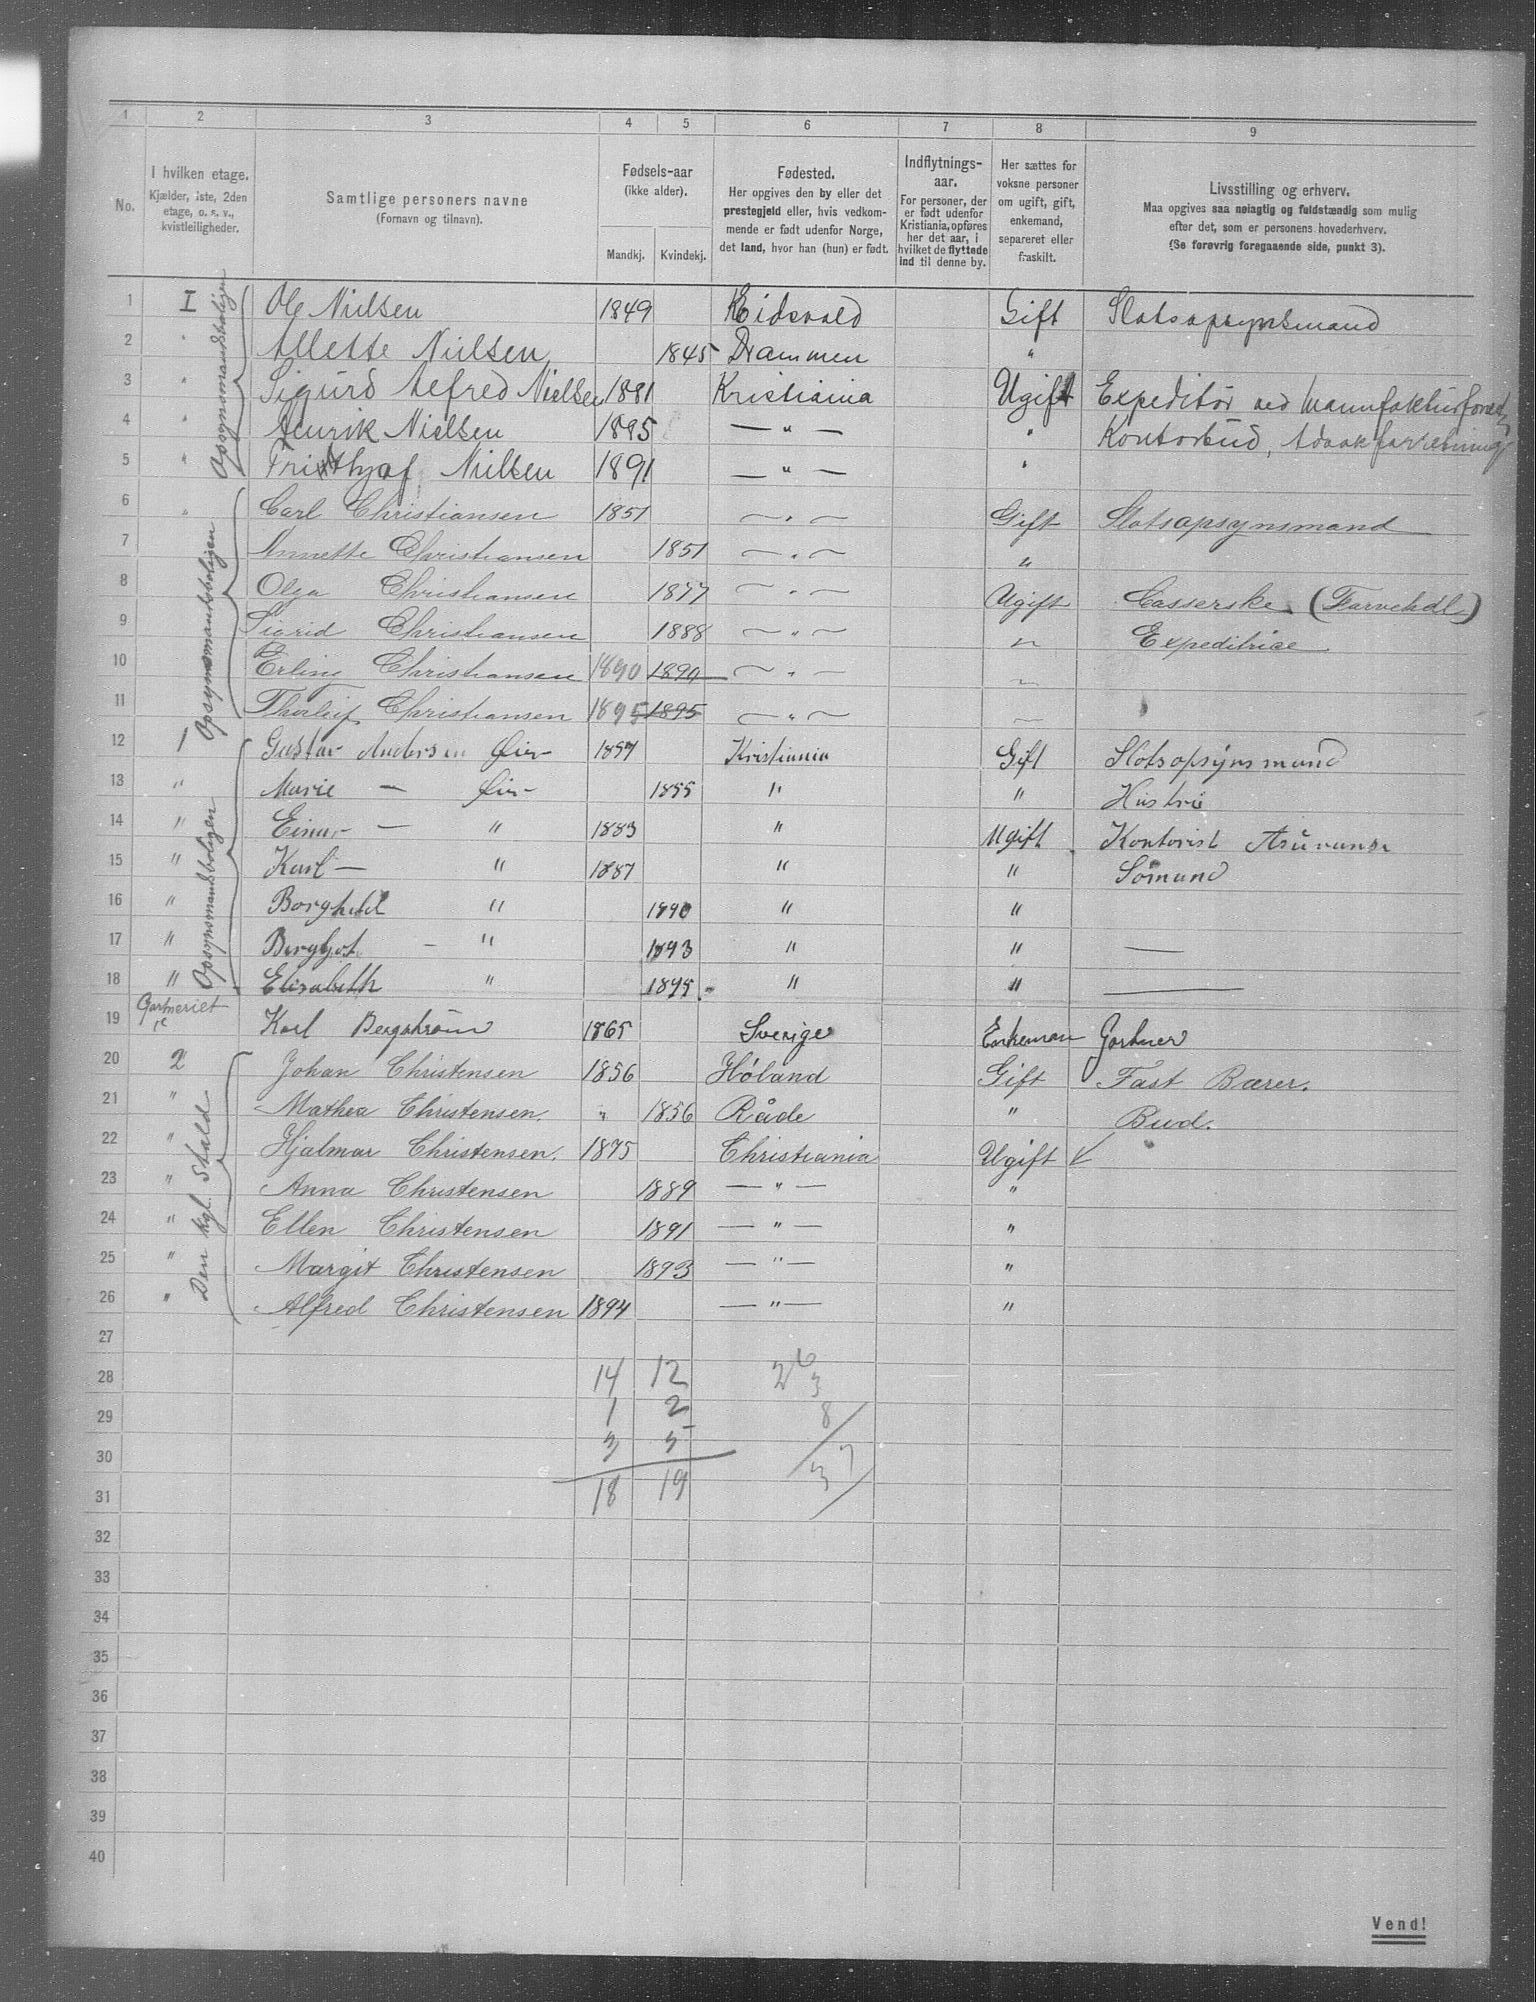 1 2 3 4 5 6 7 8 9
No.
I hvilken etage.
Kjælder, 1ste, 2den
etage, o. s. v.,
kvistleiligheder.
Samtlige personers navne
(Fornavn og tilnavn).
Fødsels-aar
(ikke alder).
Mandkj. Kvindekj.
Fødested.
Her opgives den by eller det
prestegjeld eller, hvis vedkom-
mende er født udenfor Norge,
det land, hvor han (hun) er født.
Indflytnings-
aar.
For personer, der
er født udenfor
Kristiania, opføres
her det aar, i
hvilket de flyttede
ind til denne by.
Her sættes for
voksne personer
om ugift, gift,
enkemand,
separeret eller
fraskilt.
Livsstilling og erhverv.
Maa opgives saa nøiagtig og fuldstændig som mulig
efter det, som er personens hovederhverv.
(Se forøvrig foregaaende side, punkt 3).
Opsynsmandsboligen
1 I Ole Nielsen 1849 Eidsvold Gift Slotsopsynsmand
2 " Allette Nielsen 1845 Drammen "
3 " Sigurd Alfred Nielsen 1881 Kristiania Ugift Expeditør ved Manufakturforretn
4 " Henrik Nielsen 1895 — " — " Kontorbud,
5 " Frithjof Nielsen 1891 — " — "
Opsynsmandsboligen
6 " Carl Christiansen 1851 — " — Gift Slotsopsynsmand
7 Annette Christiansen 1851 — " — "
8 Olga Christiansen 1877 — " — Ugift Casserske (Farvehdl)
9 Sigrid Christiansen 1888 — " — " Expeditrice
10 Erling Christiansen 1890 1890 — " — "
11 Thorleif Christiansen 1895 1895 — " — "
Opsynsmandsboligen
12 1 Gustav Andersen Øier 1857 Kristiania Gift Slotsopsynsmand
13 " Marie — Øier 1855 " " Hustru
14 " Einar — " 1883 " Ugift Kontorist Assurance
15 " Karl — " 1887 " " Sømand
16 " Borghild " 1890 " "
17 " Bergljot — " 1893 " " —
18 " Elisabeth " 1895 " " —
Gartneriet
19 1e Karl Bergström 1865 Sverige Enkeman Gartner
Den kgl. Stald
20 2 Johan Christensen 1856 Høland Gift Fast Bærer.
21 " Mathea Christensen. " 1856 Råde "
22 " Hjalmar Christensen. 1875 Christiania Ugift Bud.
23 " Anna Christensen 1889 — " — "
24 " Ellen Christensen 1891 — " — "
25 " Margit Christensen 1893 — " — "
26 " Alfred Christensen 1894 — " — "
27
28 14 12 26
29 1 2 3
30 3 5 8
31 18 19 37
32
33
34
35
36
37
38
39
40
Vend!